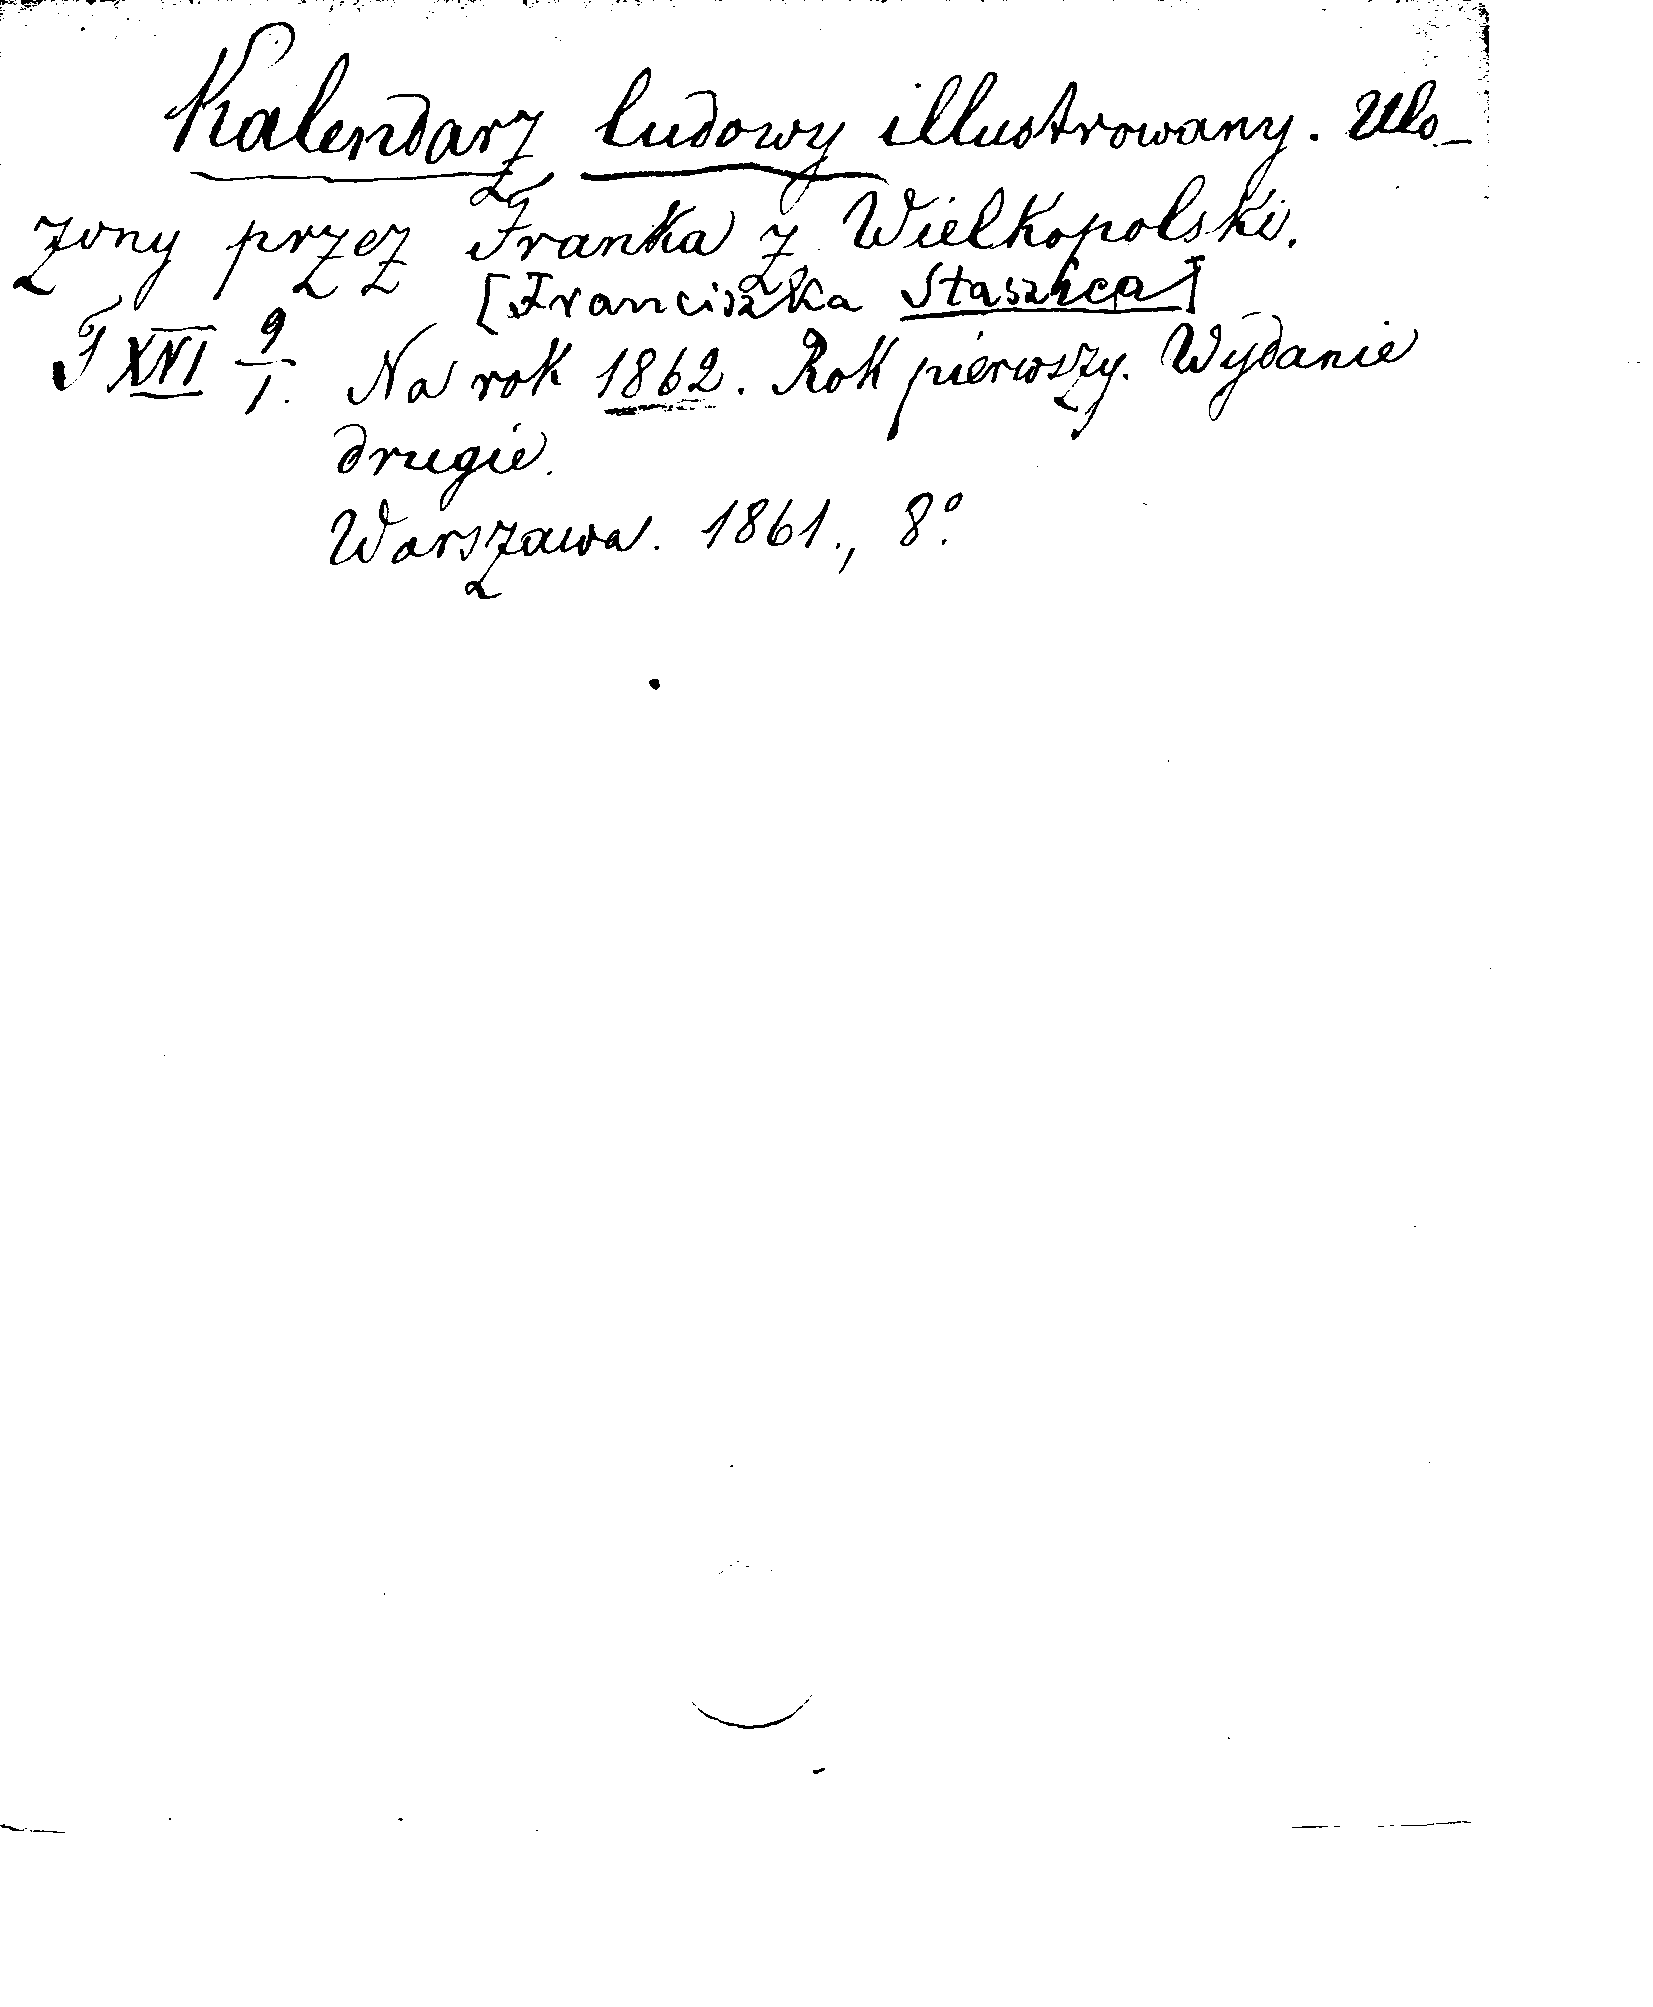 Kalendarz ludowy illustrowany. Uło-
żony przez Franka z Wielkopolski.
[Franciszka Staszica]
T XVI 9/1. Na rok 1862. Rok pierwszy. Wydanie
drugie.
Warszawa. 1861., 8°.